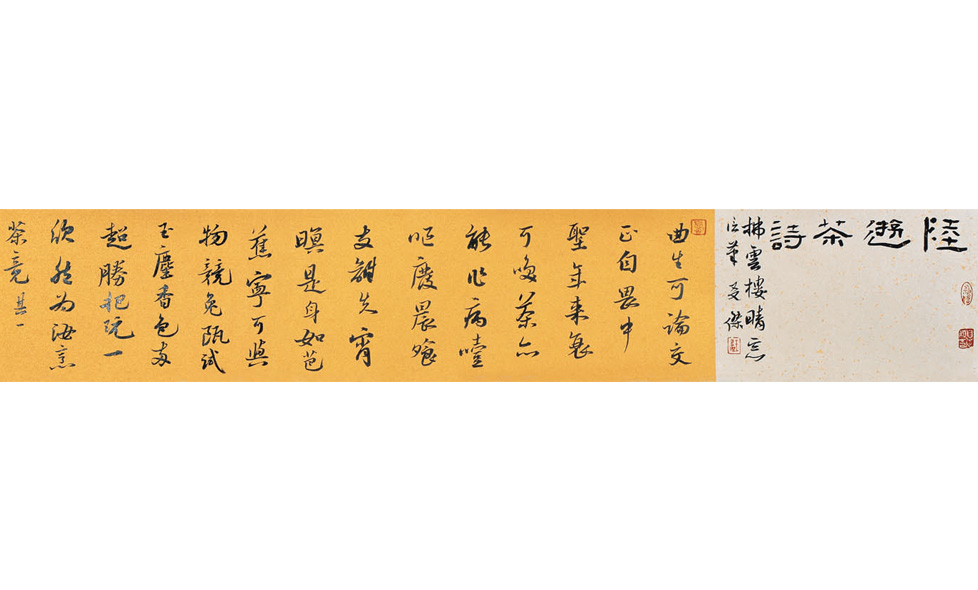 陸遊茶詩
拂雲樓晴窓
信筆 傑
曲生可論交
正自畏中
聖年來衰
可喚茶亦
能作病噎
嘔廢晨飧
支離失宵
瞑是身如芭
蕉寧可與
物競兔甌試
玉塵香色兩
超勝把玩一
欣然為汝烹
茶竟 其一